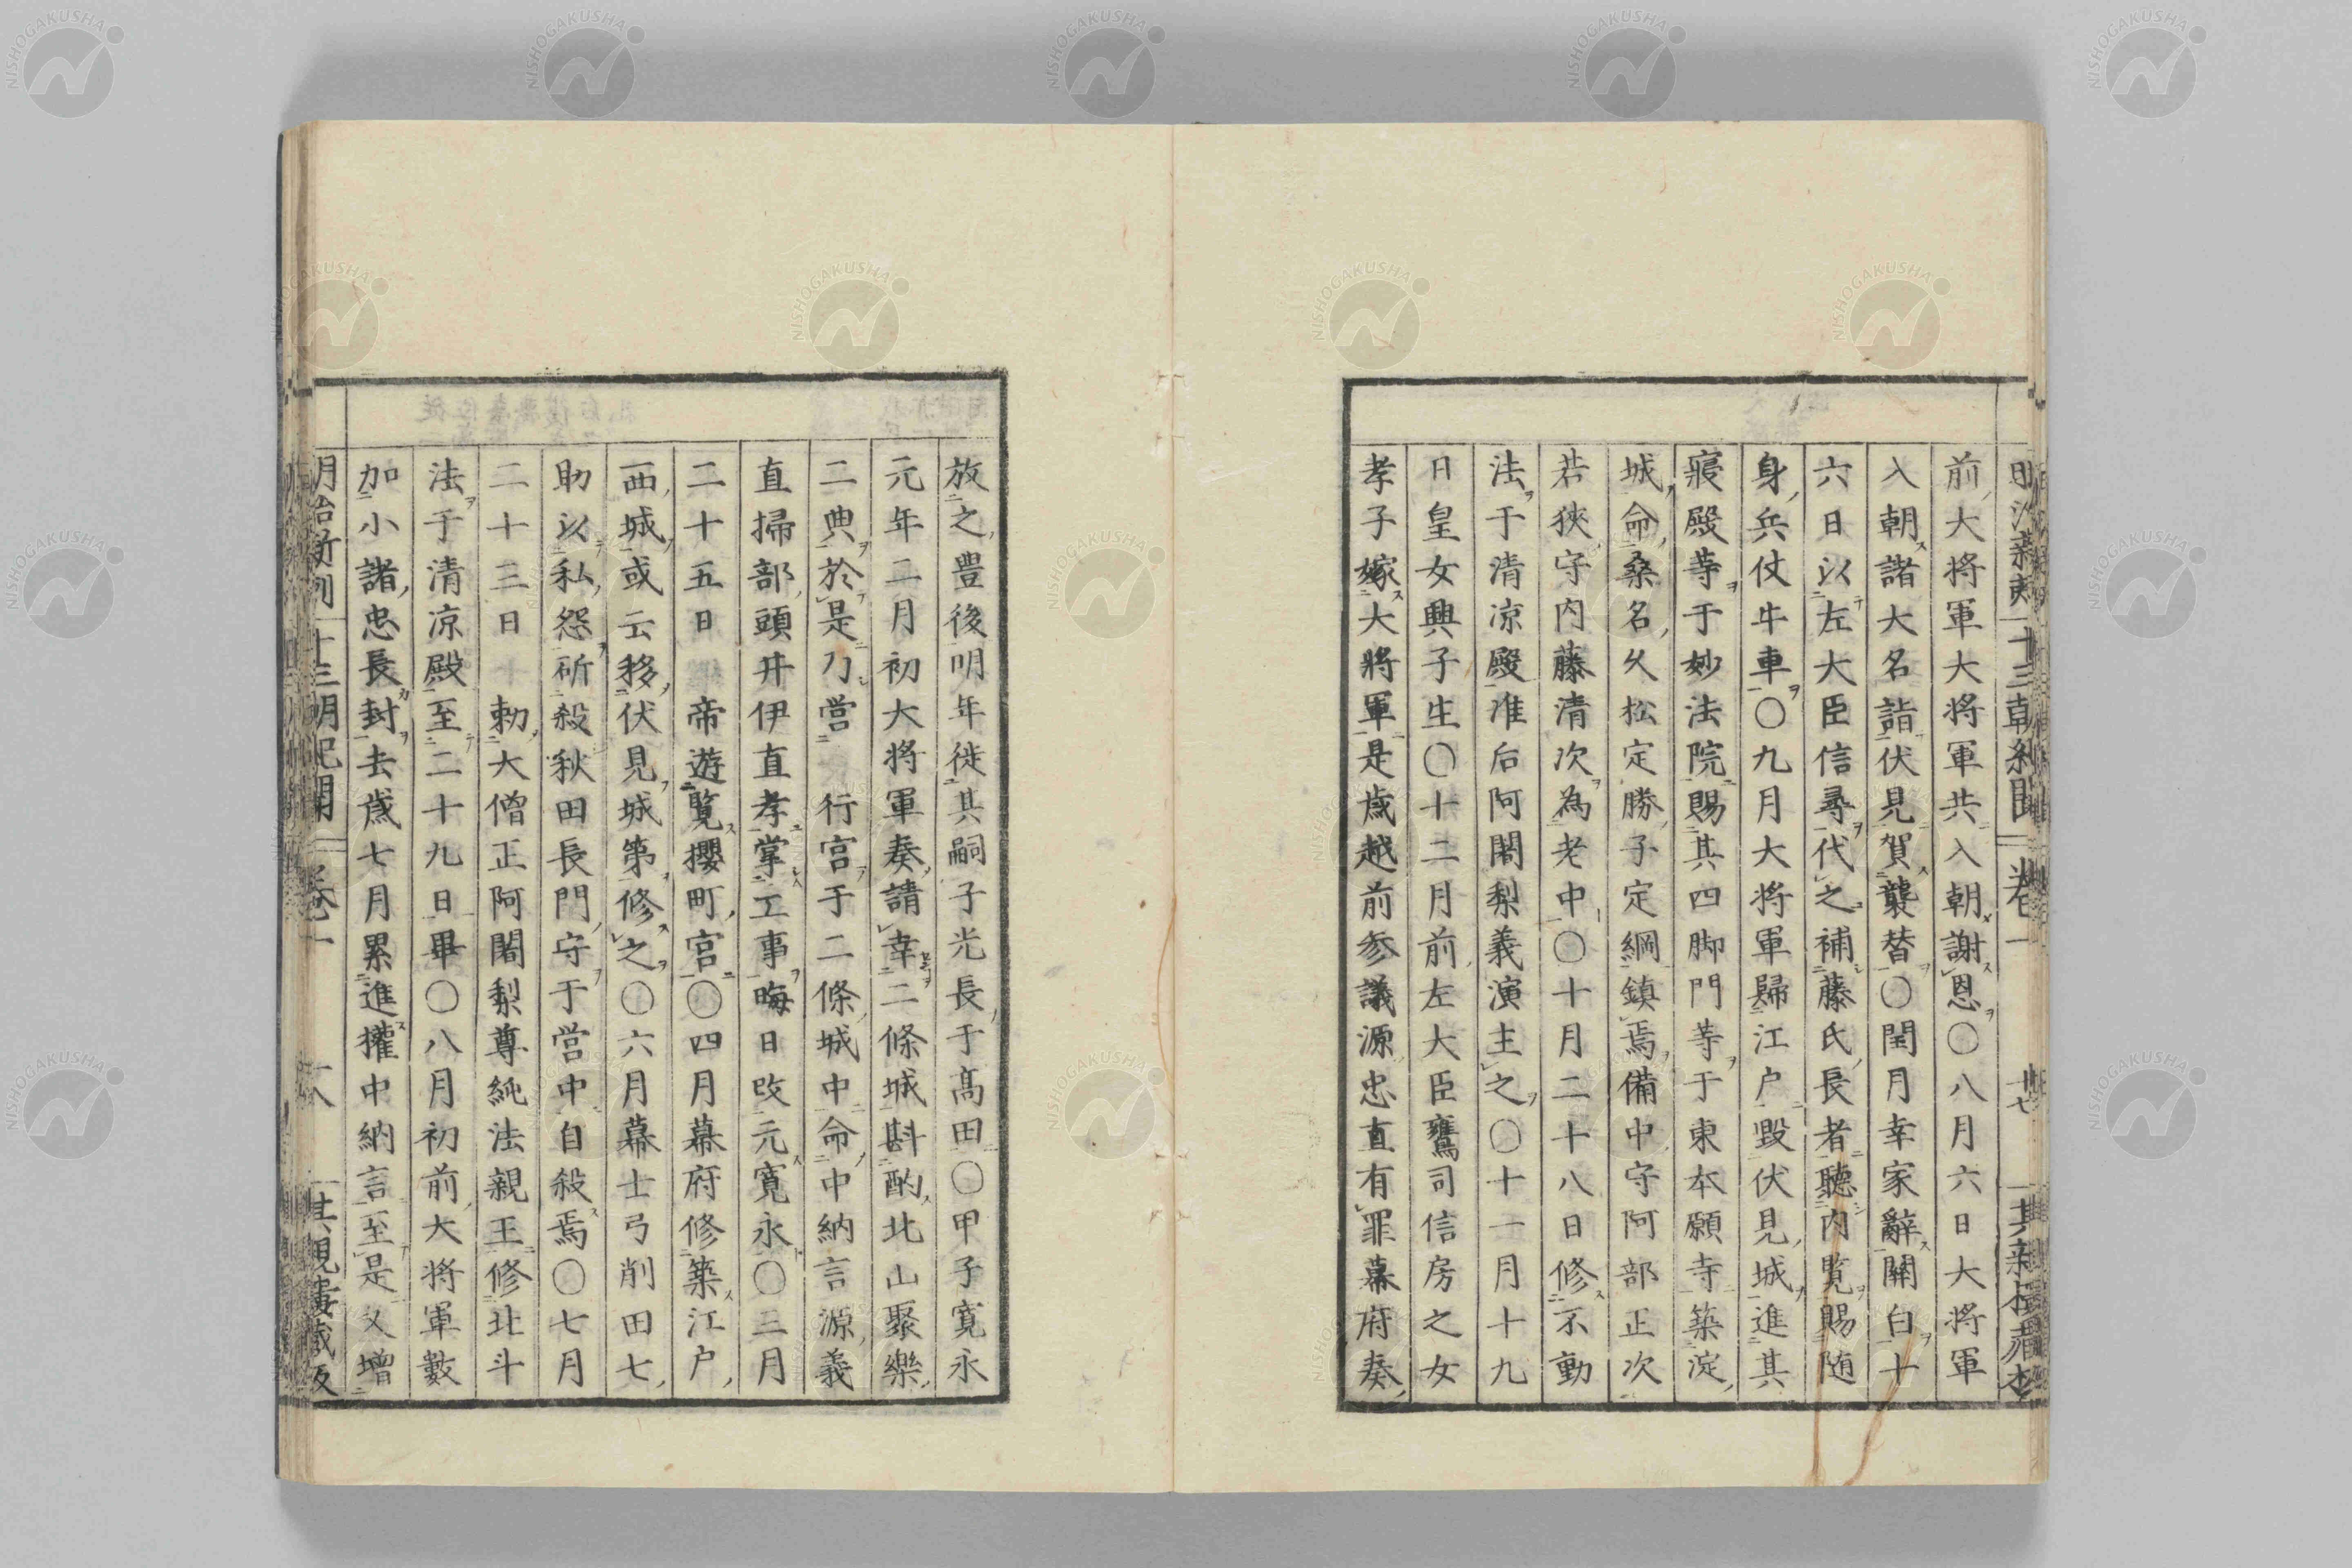 前大将軍大将軍共入朝謝恩〇八月六日大将軍
入朝諸大名詣伏見賀襲替〇閏月幸家辭關白十
六日以左大臣信尋代之補藤氏長者聽内覧賜随
身兵仗牛車〇九月大将軍歸江户毀伏見城進其
寢殿等于妙法院賜其四脚門等于東本願寺築淀
城命桑名久松定勝子定綱鎮焉備中守阿部正次
若狹守内藤清次為老中〇十月二十八日修不動
法于清凉殿准后阿闍梨義演主之〇十一月十九
日皇女興子生〇十二月前左大臣鷹司信房之女
孝子嫁大將軍是歳越前参議源忠直有罪幕府奏
放之豊後明年徙其嗣子光長于髙田〇甲子寛永
元年二月初大将軍奏請幸二條城斟酌北山聚樂
二典於是乃営行宮于二條城中命中納言源義
直掃部頭井伊直孝掌工事晦日改元寛永〇三月
二十五日帝遊覧櫻町宮〇四月幕府修築江户
西城或云移伏見城第修之〇六月幕士弓削田七
助以私怨斫殺秋田長門守于営中自殺焉〇七月
二十三日勅大僧正阿闍梨尊純法親王修北斗
法于清凉殿至二十九日畢〇八月初前大将軍數
加小諸忠長封去歳七月累進權中納言至是又増
十三朝紀聞 卷一
NISHOGAKUSHA